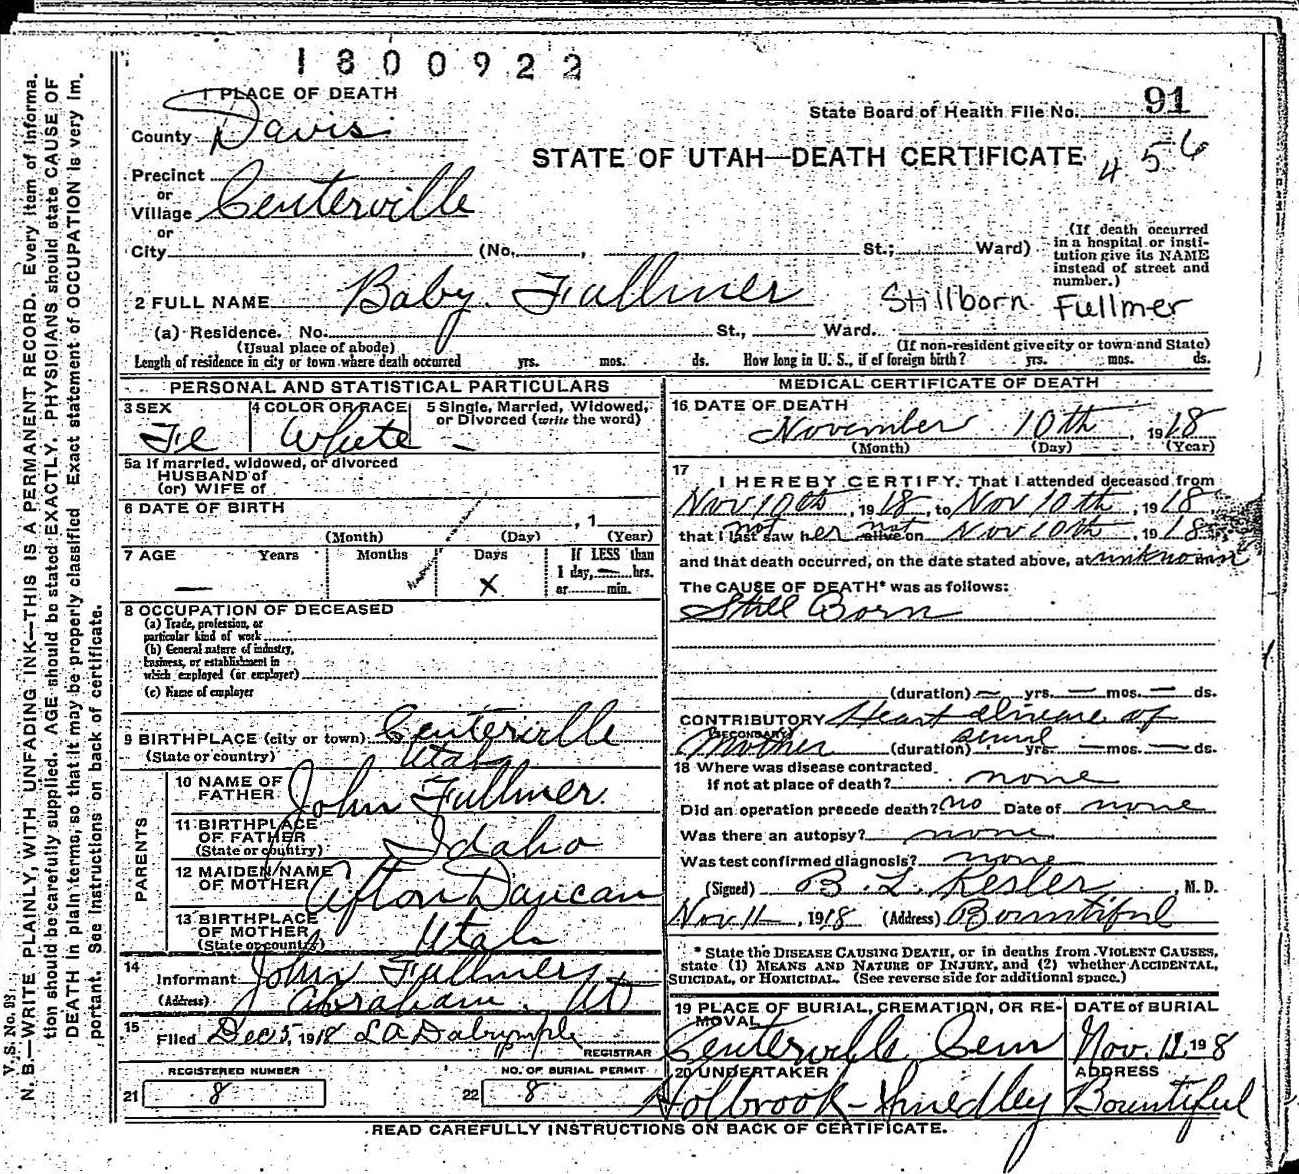 1800922
1 PLACE OF DEATH
State Board of Health File No. 91
County Davis
STATE OF UTAH—DEATH CERTIFICATE 456
Precinct
or
Village Centerville
or
City (No. , St.; Ward)
(If death occurred
in a hospital or insti-
tution give its NAME
instead of street and
number.)
2 FULL NAME Baby Fullmer Stillborn Fullmer
(a) Residence. No. St., Ward.
(Usual place of abode) (If non-resident give city or town and State)
Length of residence in city or town where death occurred yrs. mos. ds. How long in U. S., if of foreign birth? yrs. mos. ds.
PERSONAL AND STATISTICAL PARTICULARS
3 SEX 4 COLOR OR RACE 5 Single, Married, Widowed,
or Divorced (write the word)
Fe White –
5a If married, widowed, or divorced
HUSBAND of
(or) WIFE of
6 DATE OF BIRTH , 1
(Month) (Day) (Year)
7 AGE Years Months Days If LESS than
1 day, — hrs.
or min.
— X
8 OCCUPATION OF DECEASED
(a) Trade, profession, or
particular kind of work
(b) General nature of industry,
business, or establishment in
which employed (or employer)
(c) Name of employer
9 BIRTHPLACE (city or town) Centerville
(State or country) Utah
PARENTS
10 NAME OF
FATHER John Fullmer
11 BIRTHPLACE
OF FATHER
(State or country) Idaho
12 MAIDEN NAME
OF MOTHER Afton Duncan
13 BIRTHPLACE
OF MOTHER
(State or country) Utah
14
Informant John Fullmer
(Address) Abraham, Ut
15
Filed Dec 5, 1918 L A Dalrymple
REGISTRAR
REGISTERED NUMBER NO. OF BURIAL PERMIT
21 8 22 8
MEDICAL CERTIFICATE OF DEATH
16 DATE OF DEATH
November 10th, 1918
(Month) (Day) (Year)
17
I HEREBY CERTIFY, That I attended deceased from
Nov 10th, 1918, to Nov 10th, 1918,
not not
that I last saw her alive on Nov 10th, 1918,
and that death occurred, on the date stated above, at unknown m
The CAUSE OF DEATH* was as follows:
Still Born
(duration) — yrs. — mos. — ds.
CONTRIBUTORY Heart disease of
(SECONDARY)
Mother (duration) yrs. — mos. — ds.
18 Where was disease contracted
if not at place of death? none
Did an operation precede death? no Date of none
Was there an autopsy? none
Was test confirmed diagnosis? none
(Signed) B. L. Kesler, M. D.
Nov 11, 1918 (Address) Bountiful
* State the DISEASE CAUSING DEATH, or in deaths from VIOLENT CAUSES,
state (1) MEANS AND NATURE OF INJURY, and (2) whether ACCIDENTAL,
SUICIDAL, or HOMICIDAL. (See reverse side for additional space.)
19 PLACE OF BURIAL, CREMATION, OR RE-
MOVAL
Centerville Cem
DATE of BURIAL
Nov. 11, 198
20 UNDERTAKER
Holbrook-Smedley
ADDRESS
Bountiful
READ CAREFULLY INSTRUCTIONS ON BACK OF CERTIFICATE.
V. S. No. 913
N. B.—WRITE PLAINLY, WITH UNFADING INK—THIS IS A PERMANENT RECORD. Every item of informa-
tion should be carefully supplied. AGE should be stated EXACTLY. PHYSICIANS should state CAUSE OF
DEATH in plain terms, so that it may be properly classified Exact statement of OCCUPATION is very im-
portant. See instructions on back of certificate.